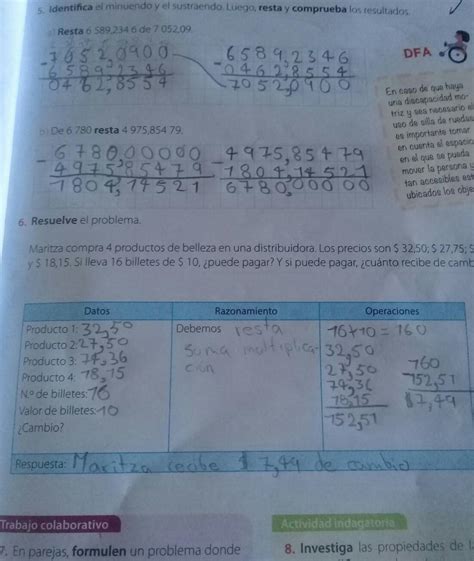 5. Identifica el minuendo y el sustraendo. Luego, resta y comprueba los resultados.
a) Resta 6 589,2346 de 7 052,09.
7052,0900
- 6589,2346
0462,8554
- 6589,2346
0462,8554
7052,0900
DFA
En caso de que haya
una discapacidad mo-
triz y sea necesario el
uso de silla de ruedas
es importante tomar
en cuenta el espacio
en el que se pueda
mover la persona y
tan accesibles
ubicados los obje
b) De 6 780 resta 4 975,854 79.
- 6780,00000
4975,85479
1804,14521
- 4975,85479
1804,14521
6780,00000
6. Resuelve el problema.
Maritza compra 4 productos de belleza en una distribuidora. Los precios son $ 32,50; $ 27,75; $
y $ 18,15. Si lleva 16 billetes de $ 10, ¿puede pagar? Y si puede pagar, ¿cuánto recibe de camb
Datos
Razonamiento
Operaciones
Producto 1: 32,50
Producto 2: 27,50
Producto 3: 74,36
Producto 4: 18,15
N.º de billetes: 16
Valor de billetes: 10
¿Cambio?
Debemos resta
suma multiplica-
cion
16×10=160
32,50
27,50
74,36
18,15
152,51
160
-152,51
$7,49
Respuesta: Maritza recibe $ 7,49 de cambio
Trabajo colaborativo
Actividad indagatoria
7. En parejas, formulen un problema donde
8. Investiga las propiedades de l